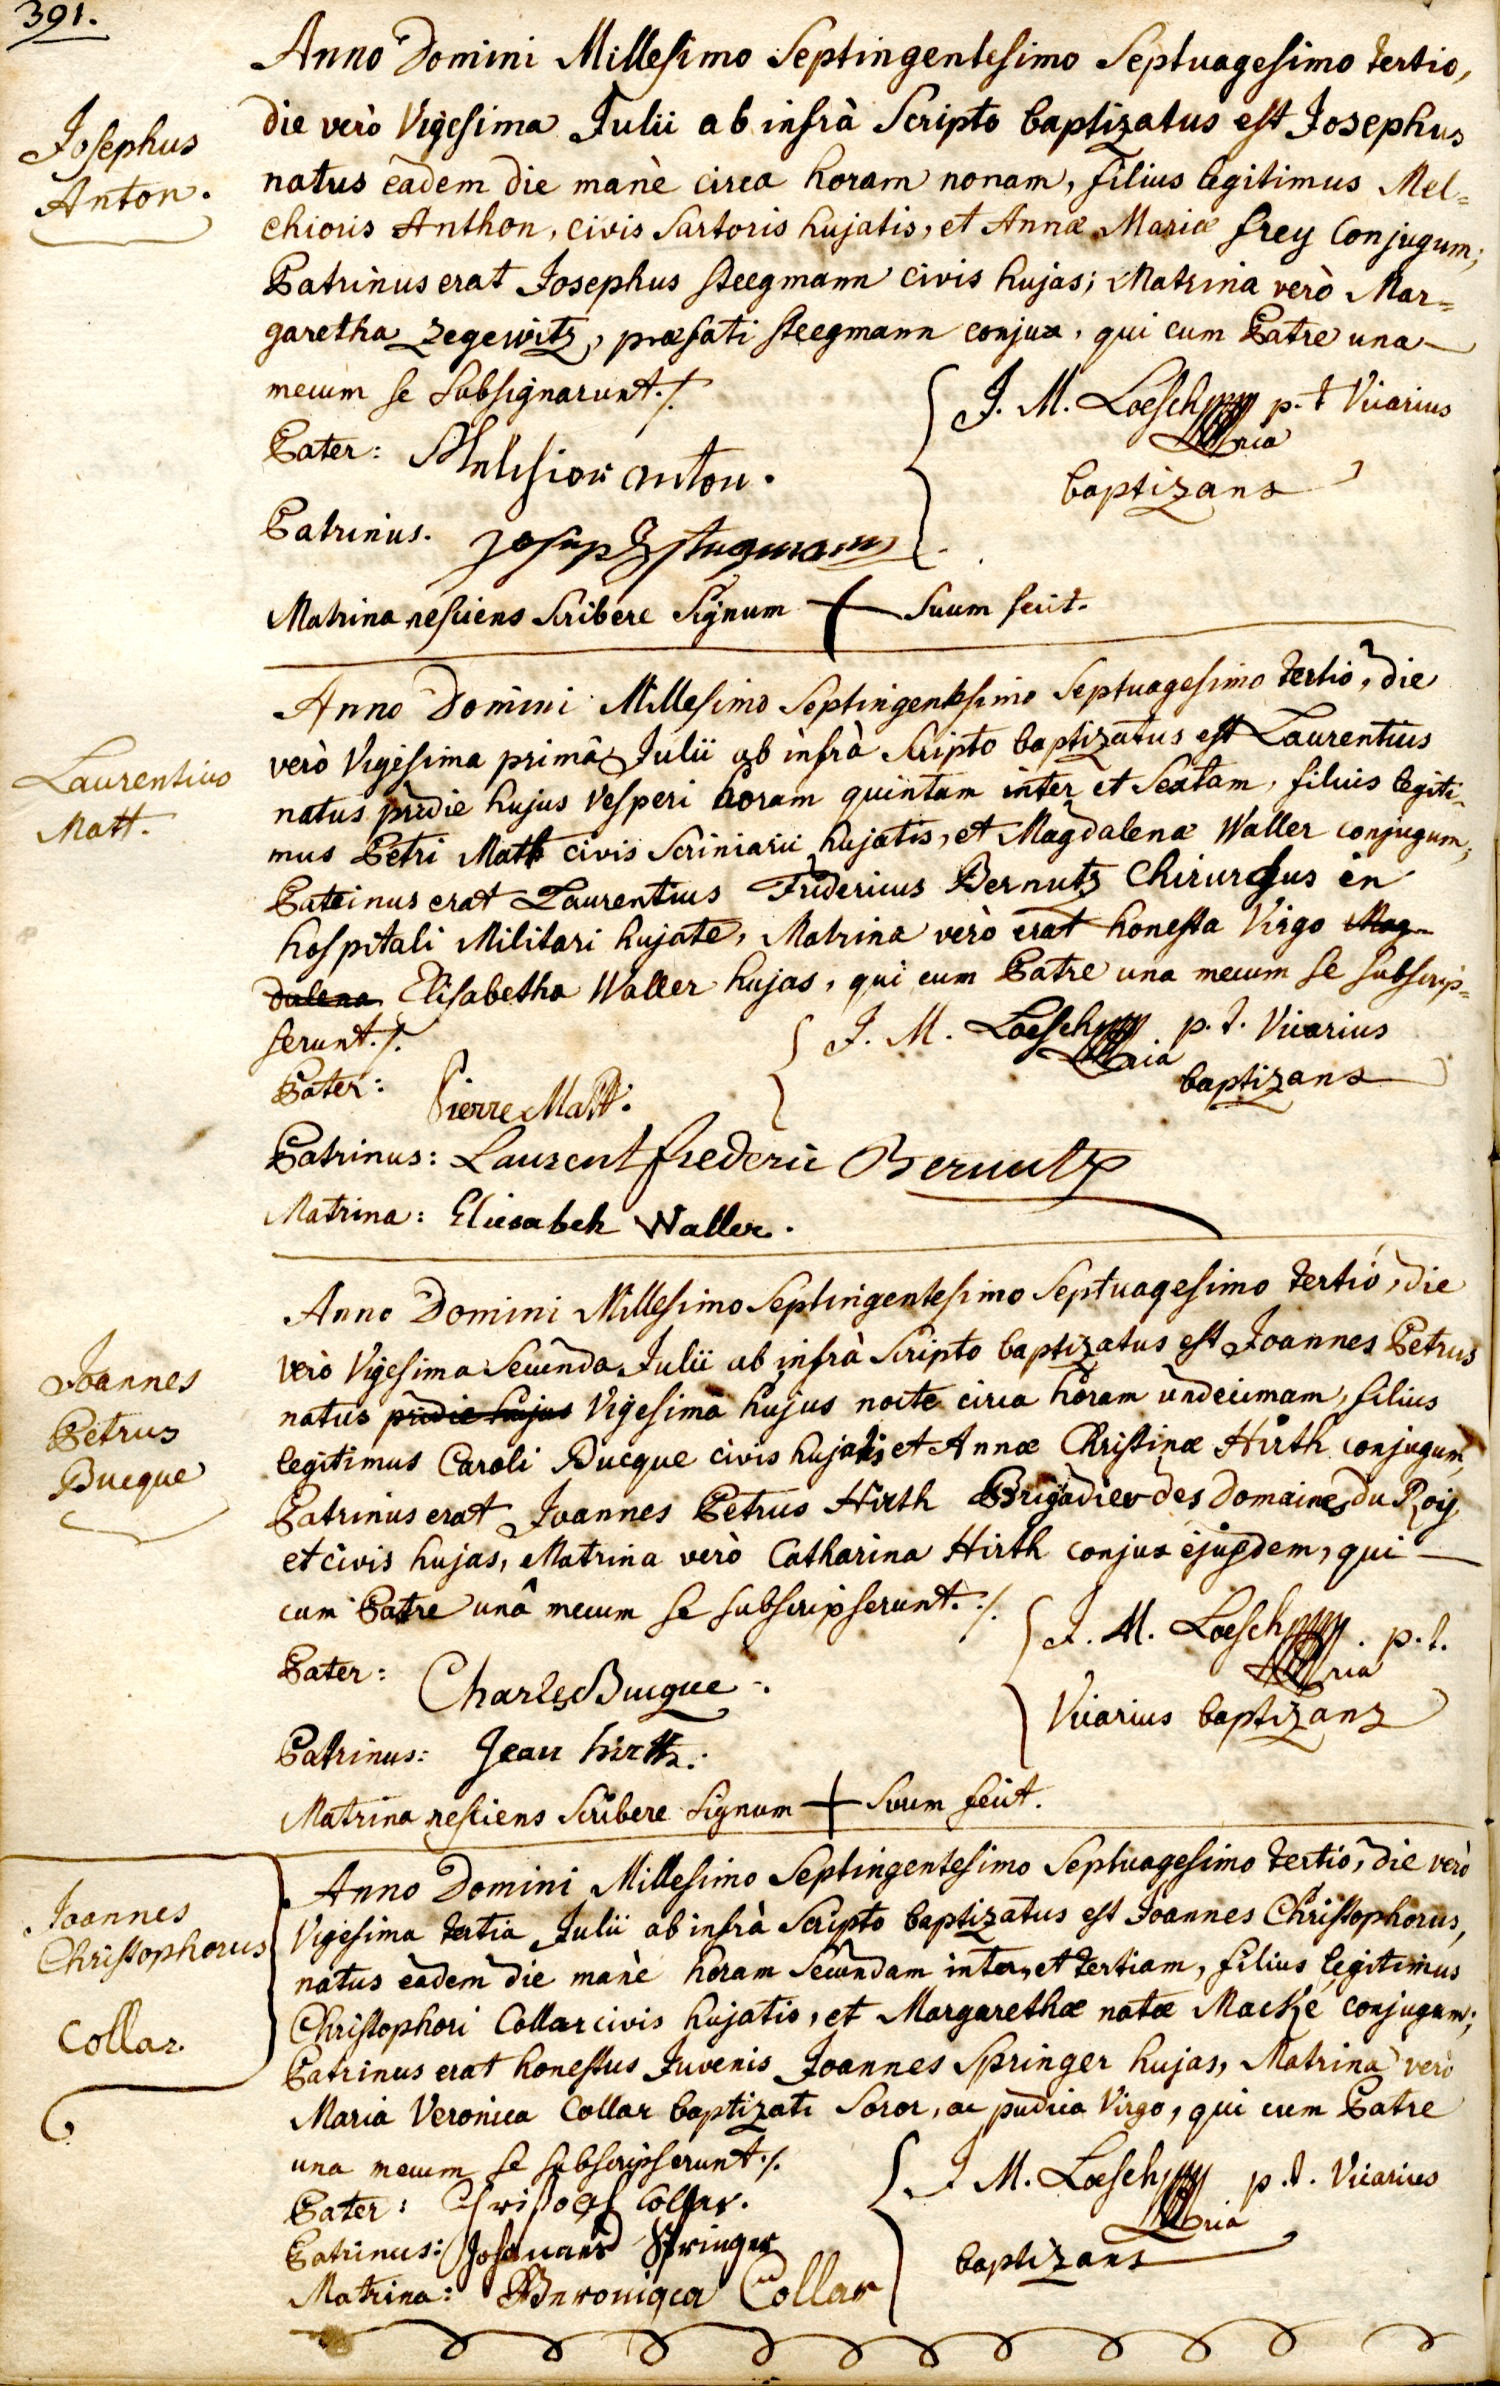 391.
Josephus
Anton.
Anno Domini Millesimo Septingentesimo Septuagesimo tertio,
die verò Vigesima Julii ab infrà Scripto baptizatus est Josephus
natus eâdem die manè circa horam nonam, filius legitimus Mel=
chioris Anthon, civis Sartoris hujatis, et Annæ Mariæ frey Conjugum;
Patrinus erat Josephus steegmann civis hujas; Matrina verò Mar=
garetha Zegewitz, præfati steegmann conjux, qui cum Patre una
mecum se Subsignarunt./.
J. M. Loesch p. t Vicarius
baptizans
Pater: Melchior anton.
Patrinus. Joseph stegmann
Matrina nesciens Scribere Signum + Suum fecit.
Laurentius
Matt.
Anno Domini Millesimo Septingentesimo Septuagesimo tertio, die
verò Vigesima primâ Julii ab infrà Scripto baptizatus est Laurentius
natus pridie hujus Vesperi horam quintam inter et Sextam, filius legiti=
mus Petri Matt civis Scriniarii hujatis, et Magdalenæ Waller conjugum;
Patrinus erat Laurentius Fridericus Bernutz Chirurgus in
hospitali Militari hujate, Matrina verò erat honesta Virgo Mag=
dalena Elisabetha Waller hujas, qui cum Patre una mecum se subscrip=
serunt./.
J. M. Loesch p. t. Vicarius
baptizans
Pater: Pierre Matt.
Patrinus: Laurent frederic Bernutz
Matrina: Eliesabeh Waller.
Joannes
Petrus
Bucque
Anno Domini Millesimo Septingentesimo Septuagesimo tertiô, die
verò Vigesima Secunda Julii ab infrà Scripto baptizatus est Joannes Petrus
natus pridie hujus Vigesimâ hujus nocte circa horam undecimam, filius
legitimus Caroli Bucque civis hujatis et Annæ Christinæ Hirth conjugum,
Patrinus erat Joannes Petrus Hirth Brigadier des Domaines du Roy
et civis hujas, Matrina verò Catharina Hirth conjux ejusdem, qui
cum Patre unâ mecum se subscripserunt./.
J. M. Loesch p. t.
Vicarius baptizans
Pater: Charles Bucque
Patrinus: Jean hirtt.
Matrina nesciens Scribere Signum + Suum fecit.
Joannes
Christophorus
Collar.
Anno Domini Millesimo Septingentesimo Septuagesimo tertio, die verò
Vigesima tertia Julii ab infrà Scripto baptizatus est Joannes Christophorus,
natus eâdem die manè horam Secundam inter, et tertiam, filius legitimus
Christophori Collar civis hujatis, et Margarethæ natæ Macké conjugum;
Patrinus erat honestus Juvenis Joannes Springer hujas, Matrina verò
Maria Veronica Collar baptizati Soror, ac pudica Virgo, qui cum Patre
una mecum se subscripserunt./.
J M. Loesch p. t. Vicarius
baptizans
Pater: Christoph Collar.
Patrinus: Johannes Springer
Matrina: Veroniqca Collar